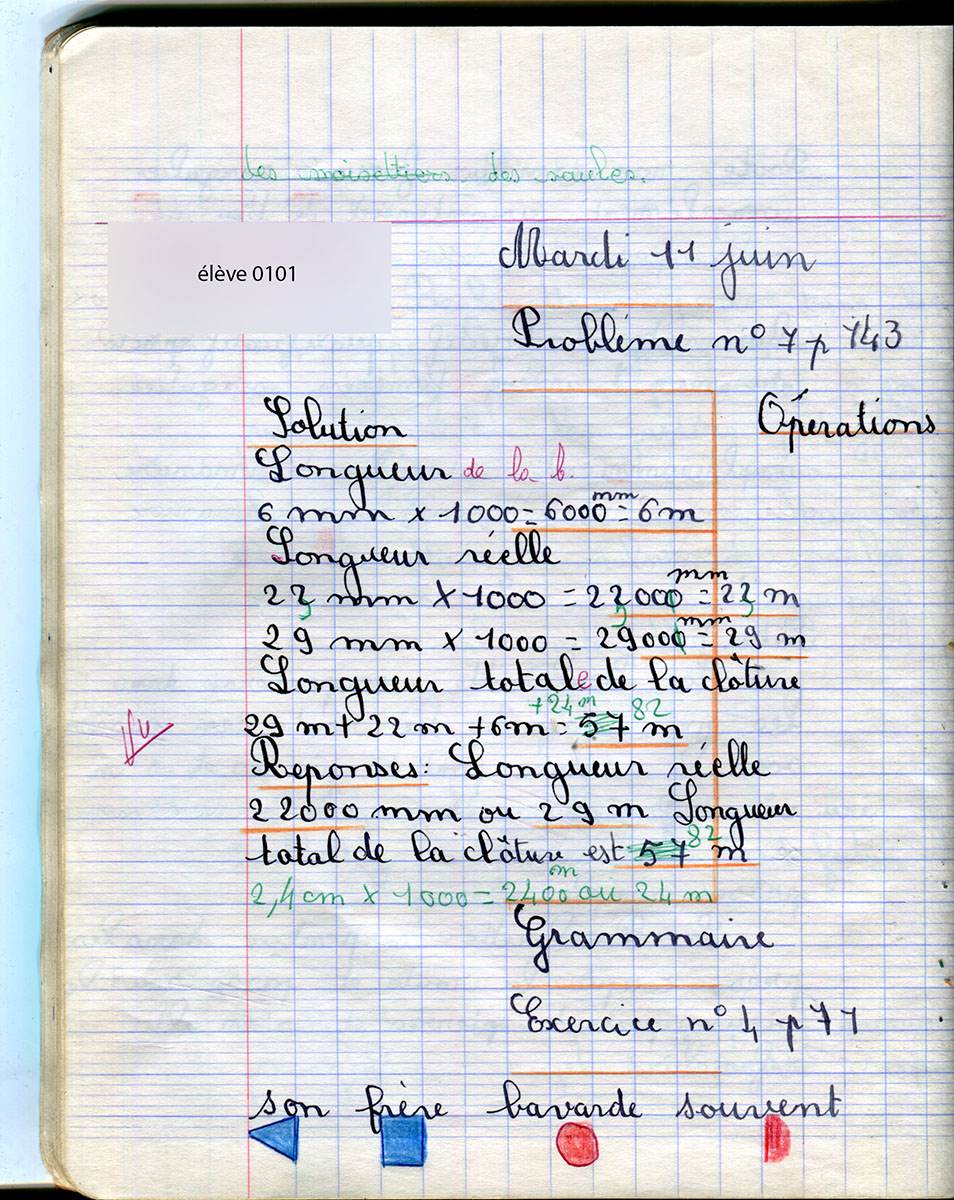 les noisettiers. des saules.
élève 0101
Mardi 11 juin
Problème n° 7 p 143
Solution
Opérations
Longueur de la b.
6 mm x 1000 = 6000 mm = 6 m
Longueur réelle
22 mm x 1000 = 22000 mm = 22 m
29 mm x 1000 = 29000 mm = 29 m
Longueur totale de la clôture
+24 m 82
29 m + 22 m + 6m = 57 m
Vu
Reponses: Longueur réelle
22000 mm ou 29 m Longueur
82
total de la clôture est 57 m
2,4 cm x 1000 = 2400 m ou 24 m
Grammaire
Exercice n° 4 p 71
son frère bavarde souvent